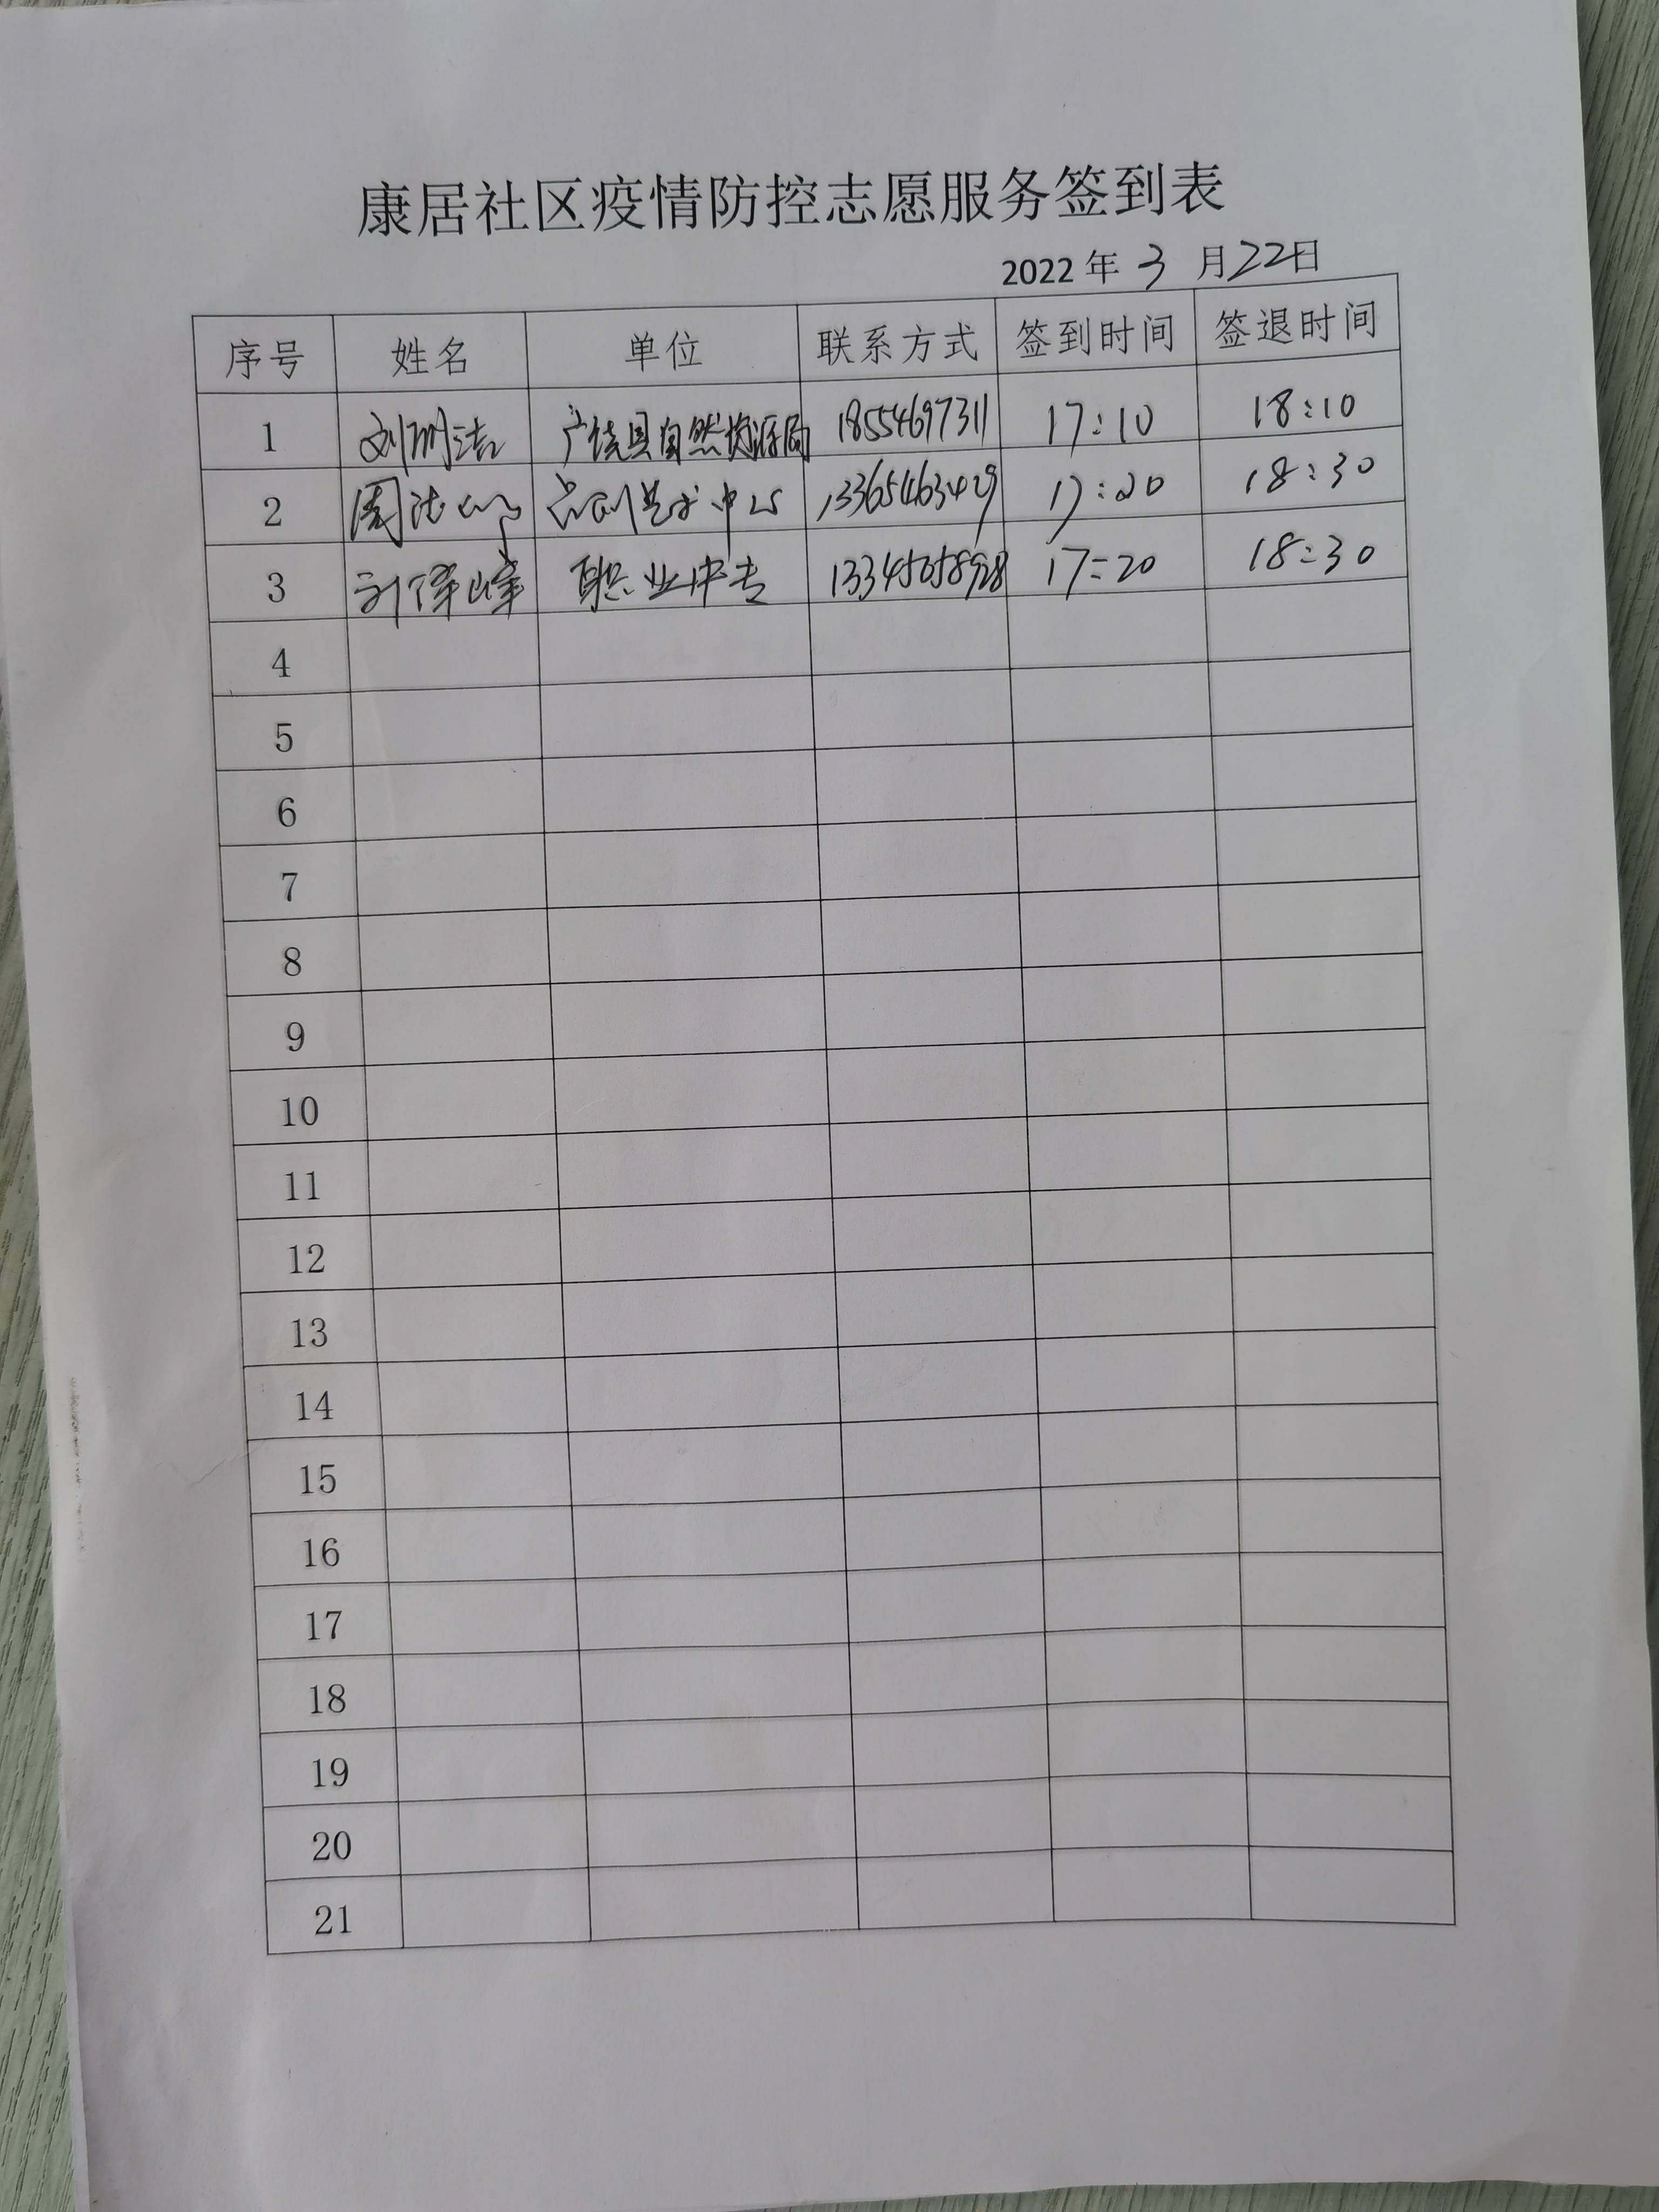 康居社区疫情防控志愿服务签到表
2022 年 3 月 22 日
序号 姓名 单位 联系方式 签到时间 签退时间
1 刘明洁 广饶县自然资源局 18554697311 17:10 18:10
2 周 艺术中心 13365463429 17:20 18:30
3 刘泽峰 职业中专 13345058928 17:20 18:30
4
5
6
7
8
9
10
11
12
13
14
15
16
17
18
19
20
21